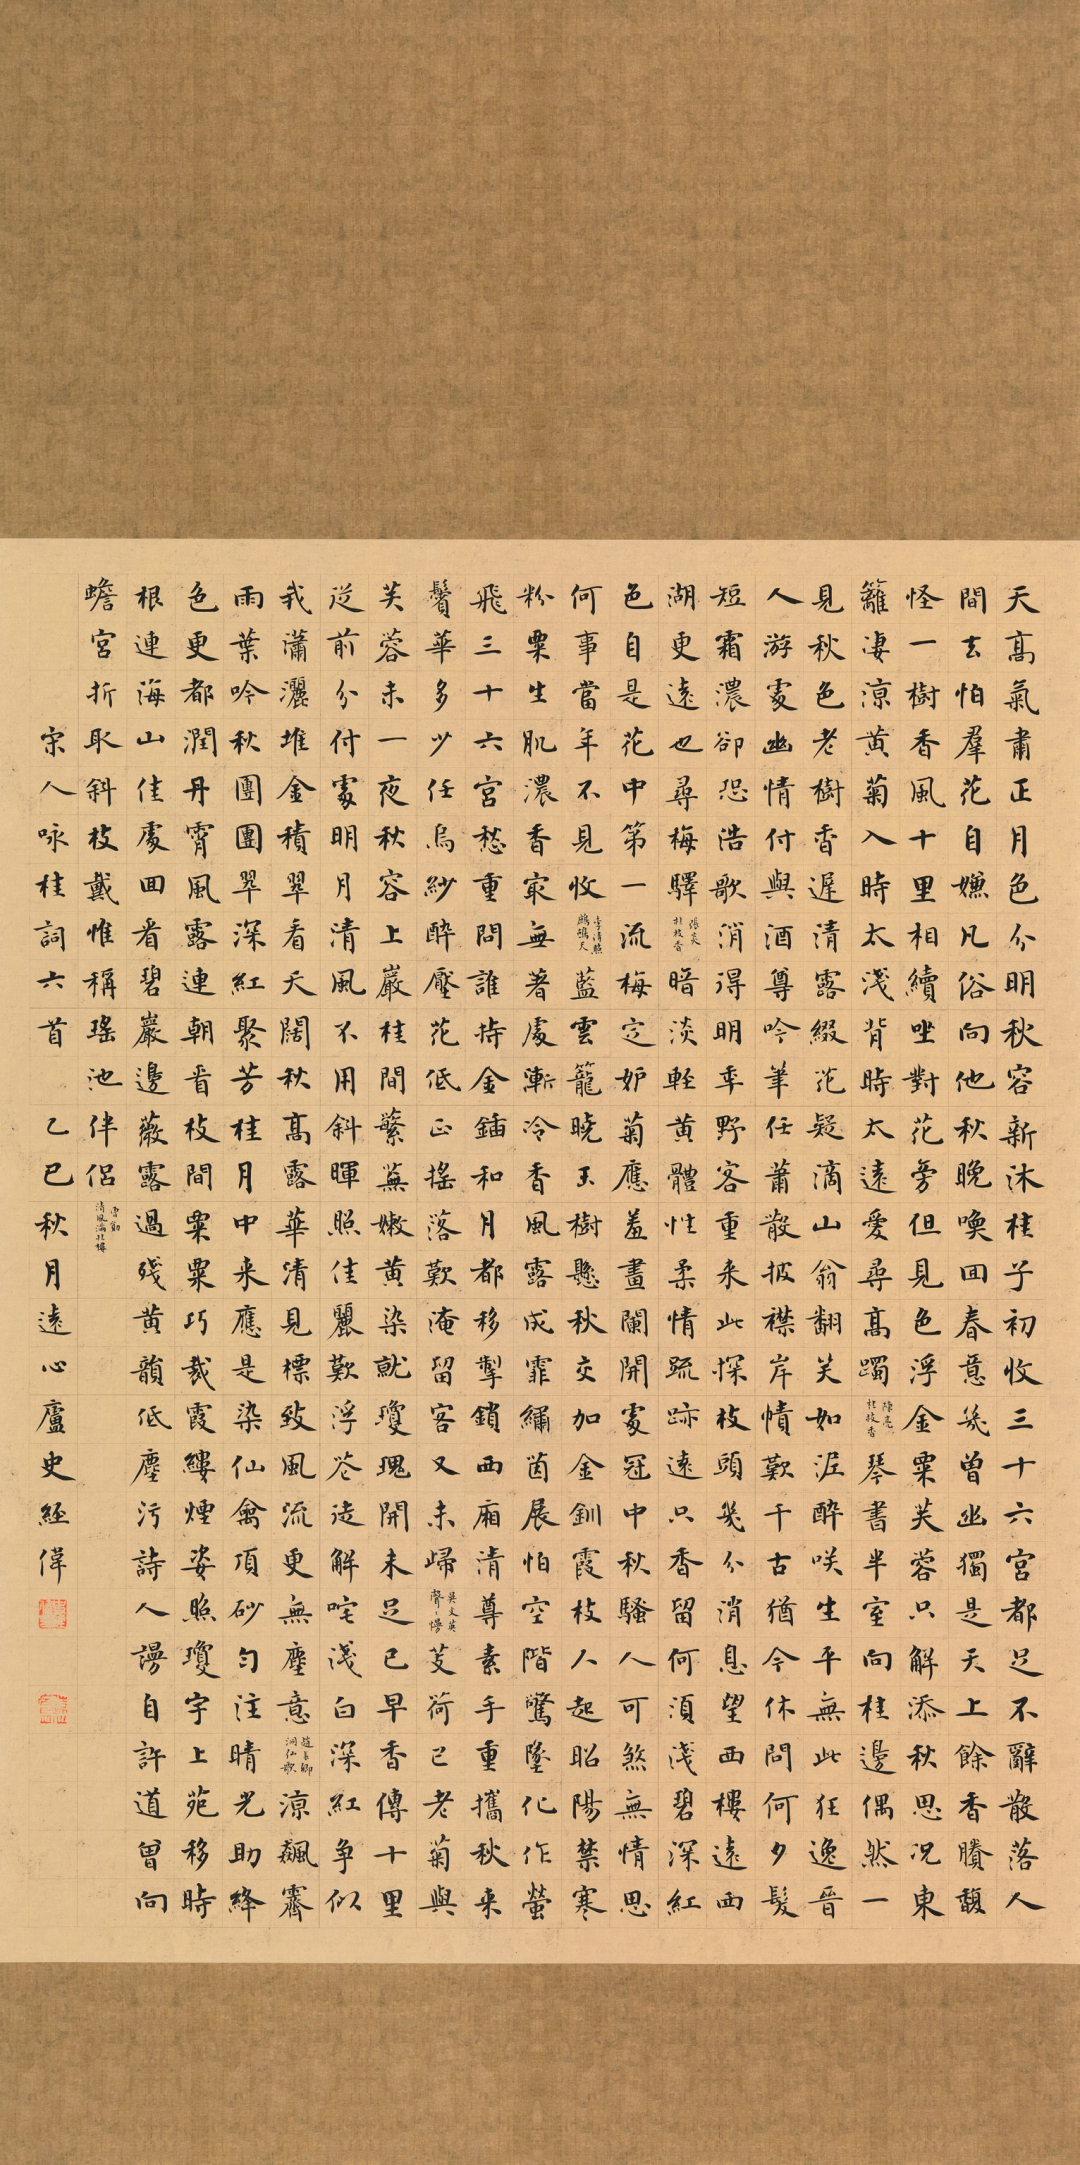 天高氣肅正月色分明秋容新沐桂子初收三十六宮都足不辭散落人
間去怕羣花自嫌凡俗向他秋晚喚回春意幾曾幽獨是天上餘香賸馥
怪一樹香風十里相續坐對花旁但見色浮金粟芙蓉只解添秋思況東
籬凄涼黃菊入時太淺背時太遠愛尋高躅 陳亮桂枝香 琴書半室向桂邊偶然一
見秋色老樹香遲清露綴花疑滴山翁翻笑如泥醉咲生平無此狂逸晉
人游處幽情付與酒尊吟筆任蕭散披襟岸幘歎千古猶今休問何夕髮
短霜濃卻恐浩歌消得明年野客重來此探枝頭幾分消息望西樓遠西
湖更遠也尋梅驛 張炎桂枝香 暗淡輕黃體性柔情疏跡遠只香留何須淺碧深紅
色自是花中第一流梅定妒菊應羞畫闌開處冠中秋騷人可煞無情思
何事當年不見收 李清照鷓鴣天 藍雲籠曉玉樹懸秋交加金釧霞枝人起昭陽禁寒
粉粟生肌濃香最無著處漸冷香風露成霏繡茵展怕空階驚墜化作螢
飛三十六宮愁重問誰持金鍤和月都移掣鎖西廂清尊素手重攜秋來
鬢華多少任烏紗醉壓花低正搖落歎淹留客又未歸 吳文英聲〻慢 芰荷已老菊與
芙蓉未一夜秋容上巖桂間繁蕪嫩黃染就瓊瑰開未足已早香傳十里
從前分付處明月清風不用斜暉照佳麗歎浮花徒解咤淺白深紅爭似
我瀟灑堆金積翠看天闊秋高露華清見標致風流更無塵意 趙長卿洞仙歌 涼飆霽
雨葉吟秋團團翠深紅聚芳桂月中來應是染仙禽頂砂勻注晴光助絳
色更都潤丹霄風露連朝看枝間粟粟巧裁霞縷煙姿照瓊宇上苑移時
根連海山佳處回看碧巖邊薇露過殘黃韻低塵污詩人謾自許道曾向
蟾宮折取斜枝戴惟稱瑤池伴侶 曹勛清風滿桂樓
宋人咏桂詞六首 乙巳秋月遠心廬史經偉